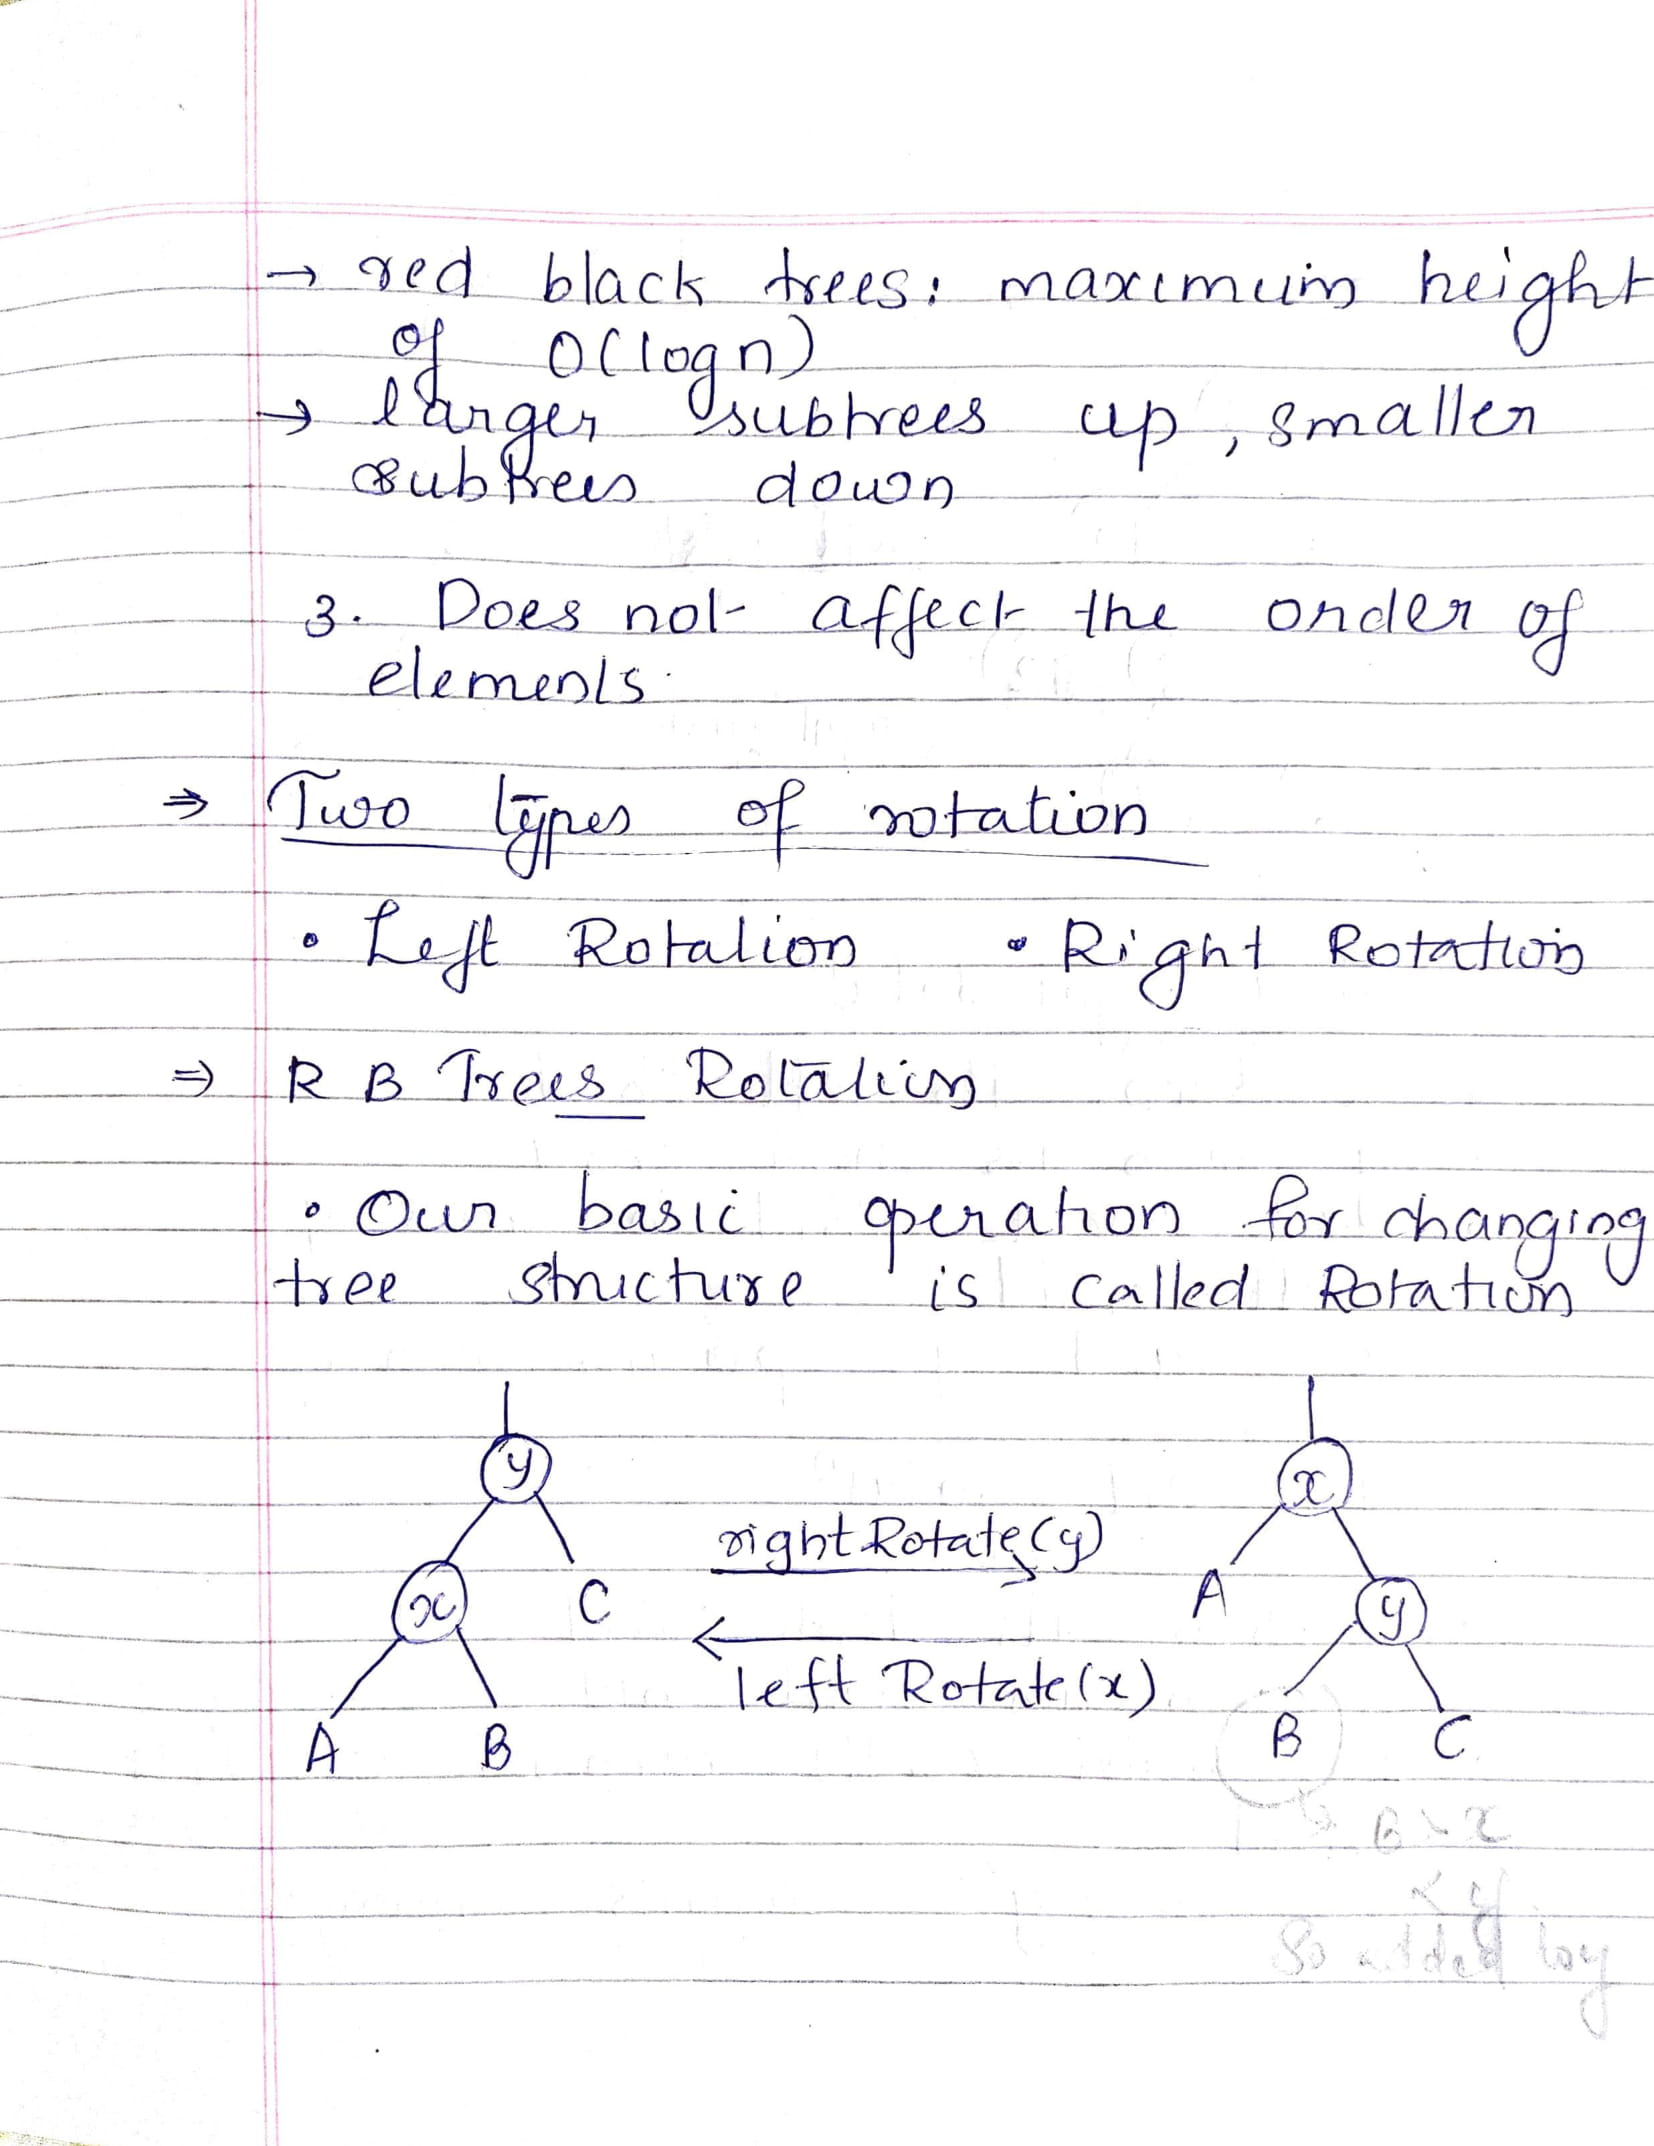 → red black trees: maximum height
of O(logn)
→ larger subtrees up, smaller
subtrees down
3. Does not affect the order of
elements.
⇒ Two types of rotation
• Left Rotation • Right Rotation
⇒ R B Trees Rotation
• Our basic operation for changing
tree structure is called Rotation
y
x
C
A
B
rightRotate(y)
left Rotate(x)
x
A
y
B
C
B > x
< y
So added by